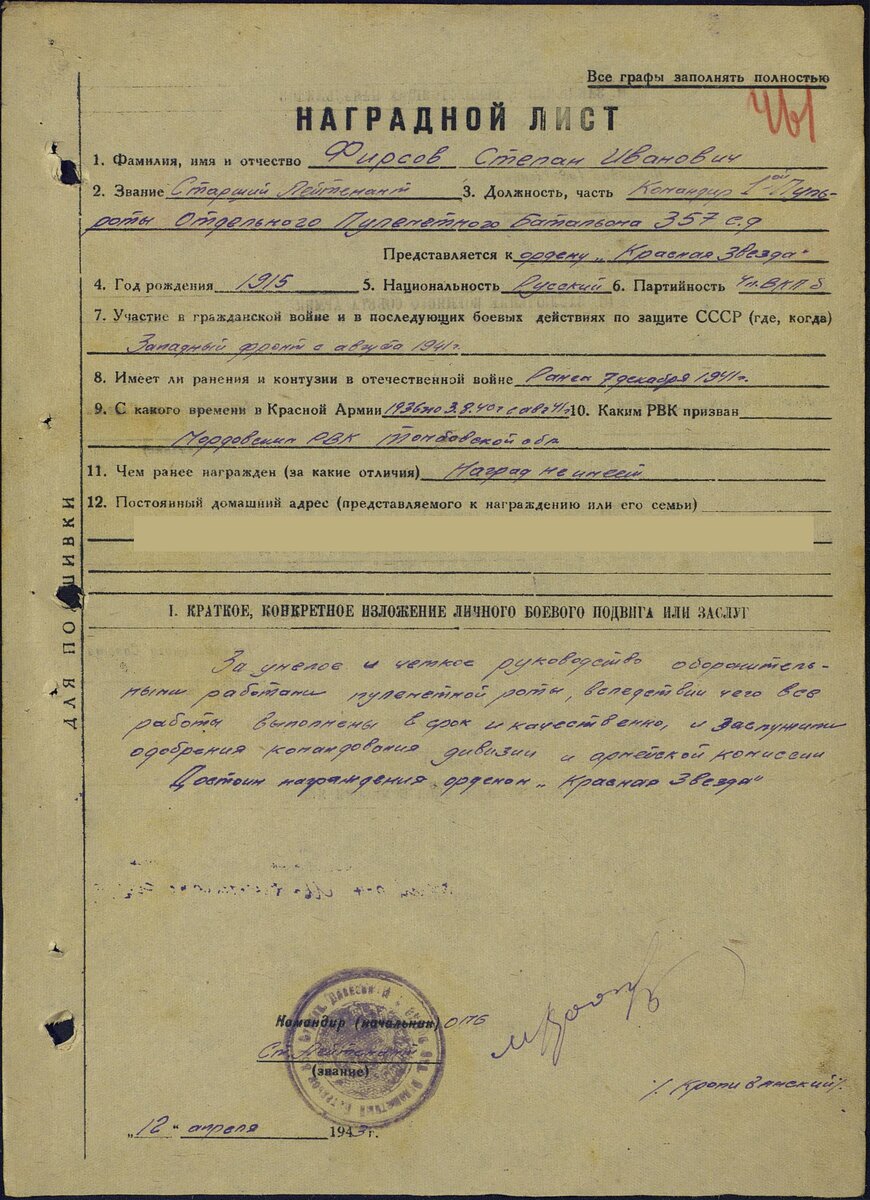 Все графы заполнять полностью
НАГРАДНОЙ ЛИСТ
461
1. Фамилия, имя и отчество Фирсов Степан Иванович
2. Звание Старший Лейтенант 3. Должность, часть Командир 1-ой Пуль-
роты Отдельного Пулеметного Батальона 357 с.д
Представляется к ордену „Красная Звезда"
4. Год рождения 1915 5. Национальность Русский 6. Партийность Чл. ВКП б
7. Участие в гражданской войне и в последующих боевых действиях по защите СССР (где, когда)
Западный фронт с августа 1941г.
8. Имеет ли ранения и контузии в отечественной войне Ранен 7 декабря 1941г.
9. С какого времени в Красной Армии 1936 по 3.9.40г с авг 41г 10. Каким РВК призван
Мордовским РВК Тамбовской обл
11. Чем ранее награжден (за какие отличия) Наград не имеет
12. Постоянный домашний адрес (представляемого к награждению или его семьи)
ДЛЯ ПОДШИВКИ
I. КРАТКОЕ, КОНКРЕТНОЕ ИЗЛОЖЕНИЕ ЛИЧНОГО БОЕВОГО ПОДВИГА ИЛИ ЗАСЛУГ
За умелое и четкое руководство оборонитель-
ными работами пулеметной роты, вследствии чего все
работы выполнены в срок и качественно, и заслужили
одобрения командования дивизии и армейской комиссии
Достоин награждения орденом „Красная Звезда"
Командир (начальник) ОПБ
Ст. Лейтенант
(звание)
/. Кропивянский/.
„12" апреля 1943г.